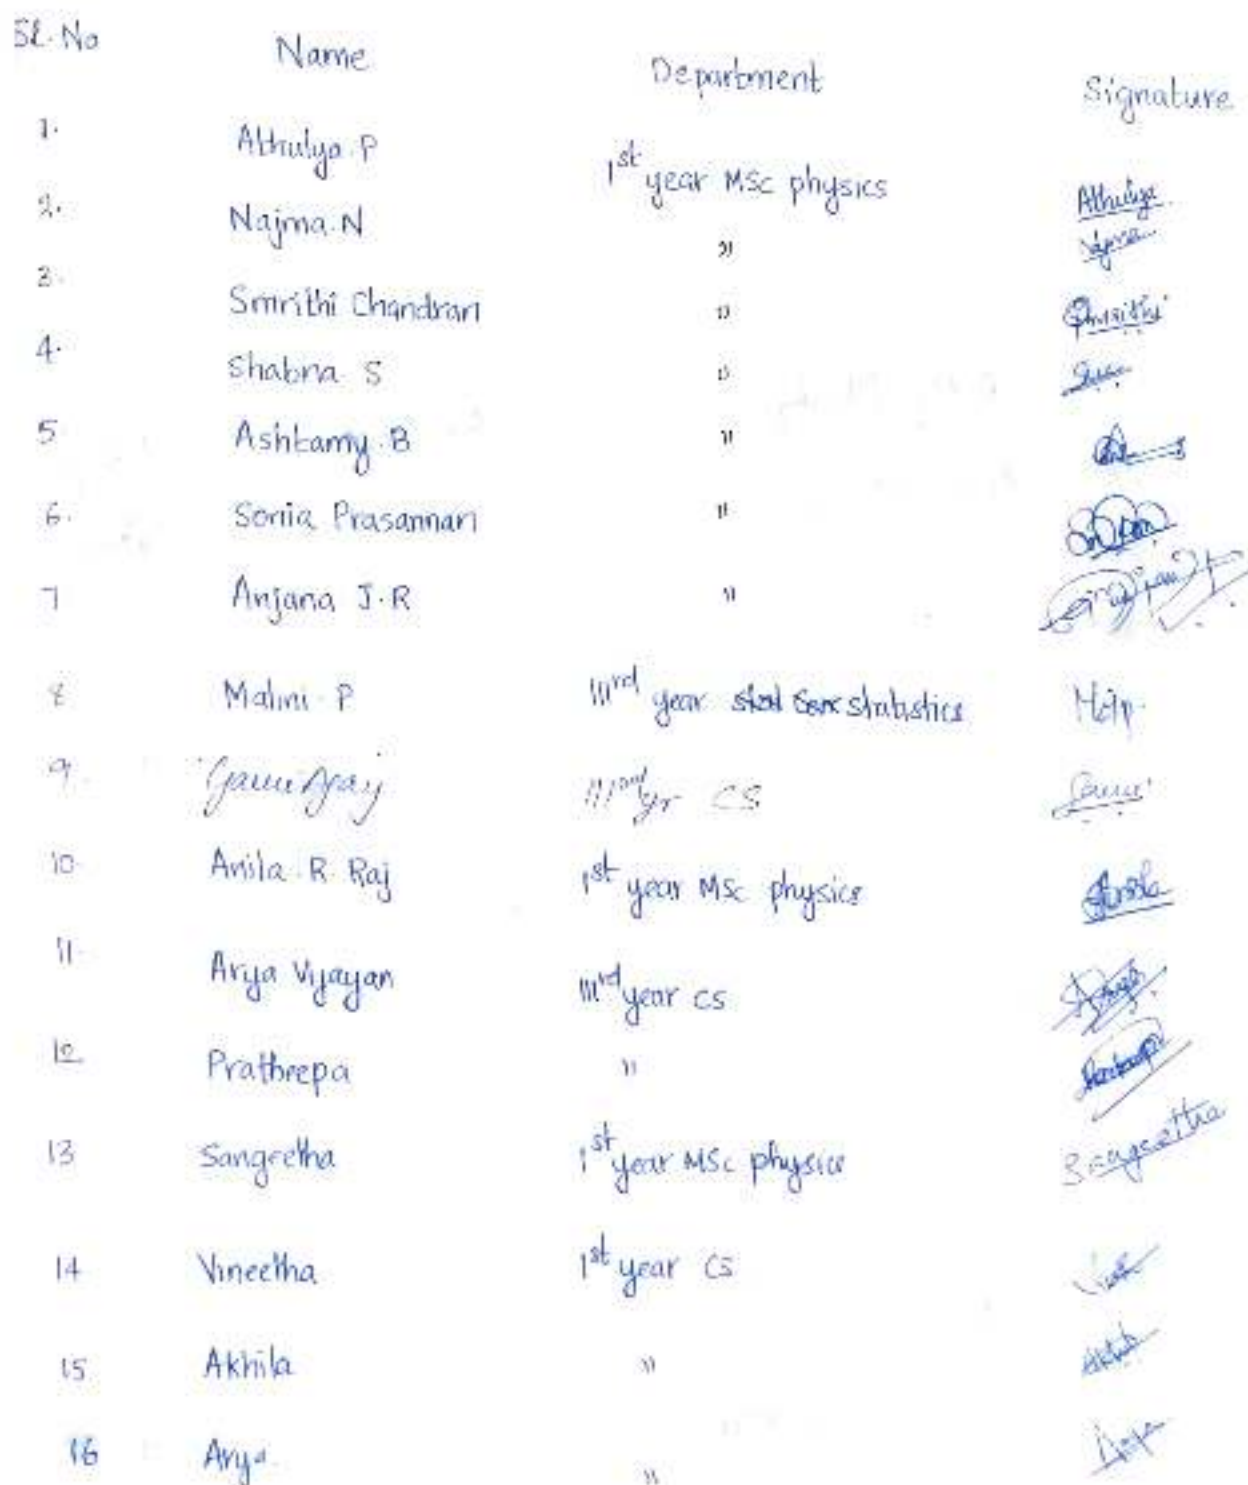 Sl. No Name Department Signature
1. Athulya. P 1st year MSc physics Athulya
2. Najma. N " Najma
3. Smrithi Chandran " Smrithi
4. Shabna S "
5. Ashtamy. B "
6. Sonia Prasannan "
7 Anjana J. R "
8 Malini. P IIIrd year statistics
9. Gauri Ajay IIIrd yr CS Gauri
10. Anila. R. Raj 1st year MSc physics Anila
11. Arya Vijayan IIIrd year CS
12 Pratheepa "
13 Sangeetha 1st year MSc physics Sangeetha
14 Vineetha 1st year CS
15 Akhila "
16 Arya. " Arya